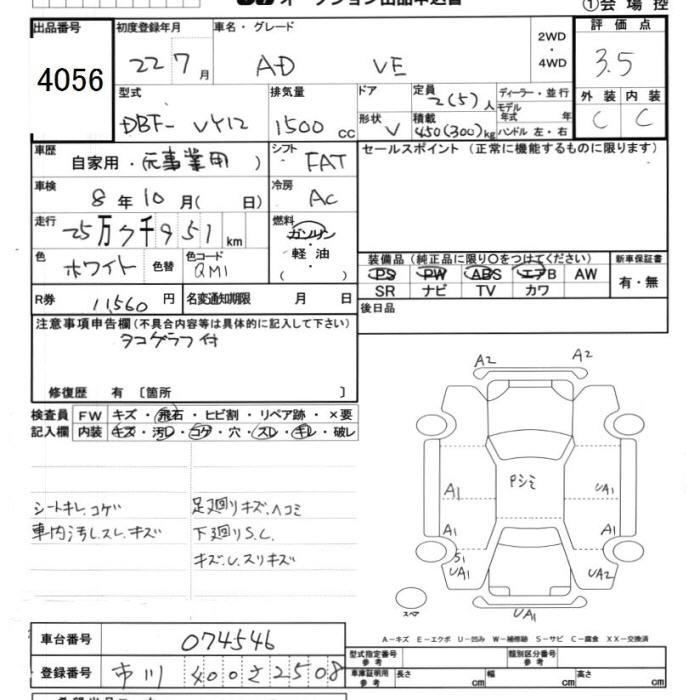 オークション出品申込書
①会場控
出品番号
4056
初度登録年月
22 7月
車名・グレード
AD VE
2WD・4WD
評価点
3.5
外装 内装
C C
型式
DBF-VY12
排気量
1500 cc
ドア
形状
V
定員
2(5)人
積載
450(300)kg
ディーラー・並行
モデル年式 年
ハンドル 左・右
車歴
自家用・(元事業用)
シフト
FAT
車検
8年10月( 日)
冷房
AC
走行
25万7千951km
燃料
ガソリン・軽油
( )
色
ホワイト
色替
色コード
QM1
R券
11,560円
名変通知期限 月 日
セールスポイント(正常に機能するものに限ります)
装備品(純正品に限り○をつけてください) 新車保証書
PS PW ABS エアB AW
SR ナビ TV カワ
有・無
後日品
注意事項申告欄(不具合内容等は具体的に記入して下さい)
タコグラフ付
修復歴 有 〔箇所 〕
検査員記入欄
FW キズ・飛石・ヒビ割・リペア跡・×要
内装 キズ・汚レ・コゲ・穴・スレ・キレ・破レ
シートキレ.コゲ
車内汚レ.スレ.キズ
足廻リキズ.ヘコミ
下廻リS.C.
キズ.U.スリキズ
A2 A2
Pシミ
A1 UA1
A1 A1
S1
UA1 UA2
UA1
スペア
A-キズ E-エクボ U-凹み W-補修跡 S-サビ C-腐食 XX-交換済
車台番号
074546
登録番号
市川 400 さ 2508
型式指定番号 参考
類別区分番号 参考
車庫証明用 参考
長さ cm 幅 cm 高さ cm